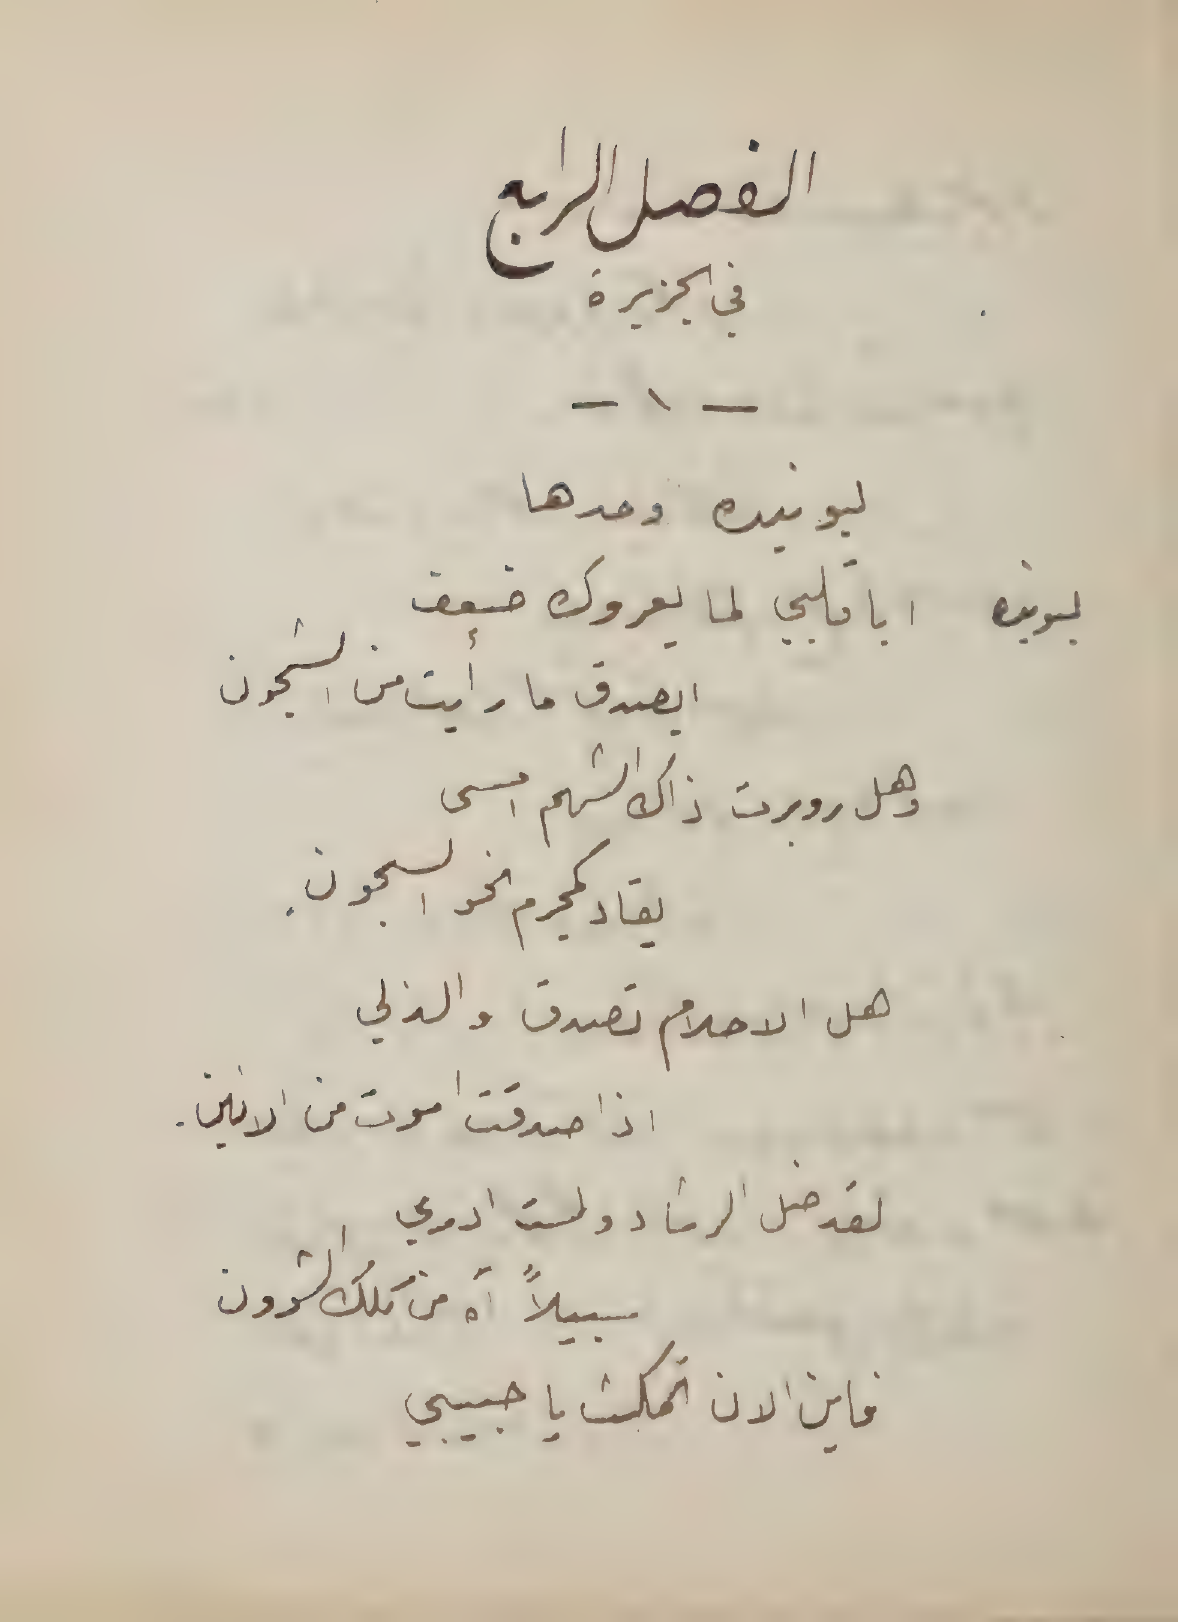 الفصل الرابع
في الجزيرة
— ١ —
ليونيده وحدها
ليونيده ايا قلبي لما يعروك ضعف
ايصدق ما رأيت من الشجون
وهل روبرت ذاك الشهم امسى
يقاد كمجرم نحو السجون.
هل الاحلام تصدق والذلي
اذا صدقت اموت من الانين.
لقد ضل الرشاد ولست ادري
سبيلاً آه من تلك الشوون
فاين الان تمكث يا حبيبي